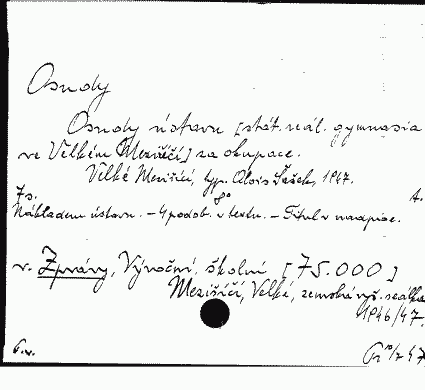 Osudy
Osudy ústavu [stát. reál. gymnasia
ve Velkém Meziříčí] za okupace.
Velké Meziříčí, typ. Alois Šašek, 1947.
7 s. 8° A.
Nákladem ústavu. – 4 podob. v textu. – Titul v nadpise.
v. Zprávy, Výroční, školní [75.000]
Meziříčí, Velké, zemská vyš. reálka
1946/47.